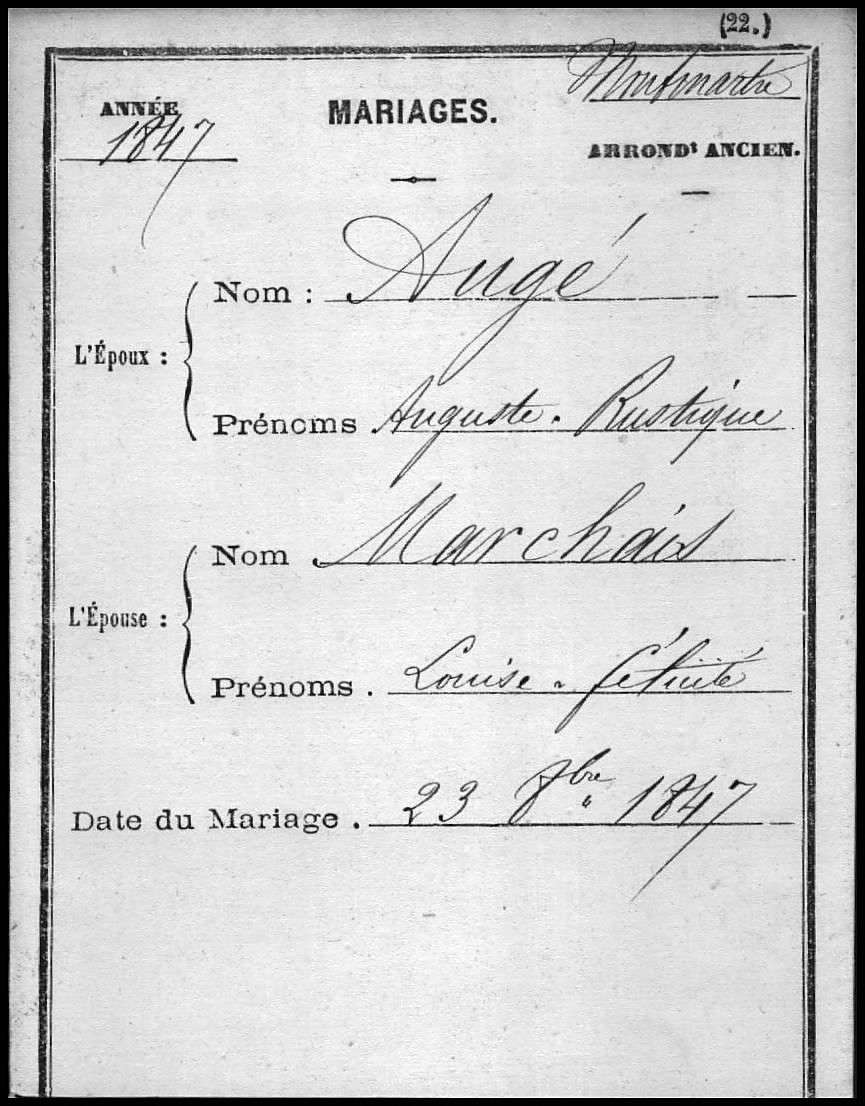 (22.)
Montmartre
ANNÉE
1847
MARIAGES.
ARRONDt ANCIEN.
Nom : Augé
L'Époux :
Prénoms Auguste. Rustique
Nom Marchais
L'Épouse :
Prénoms . Louise. Félicité
Date du Mariage . 23 8bre 1847